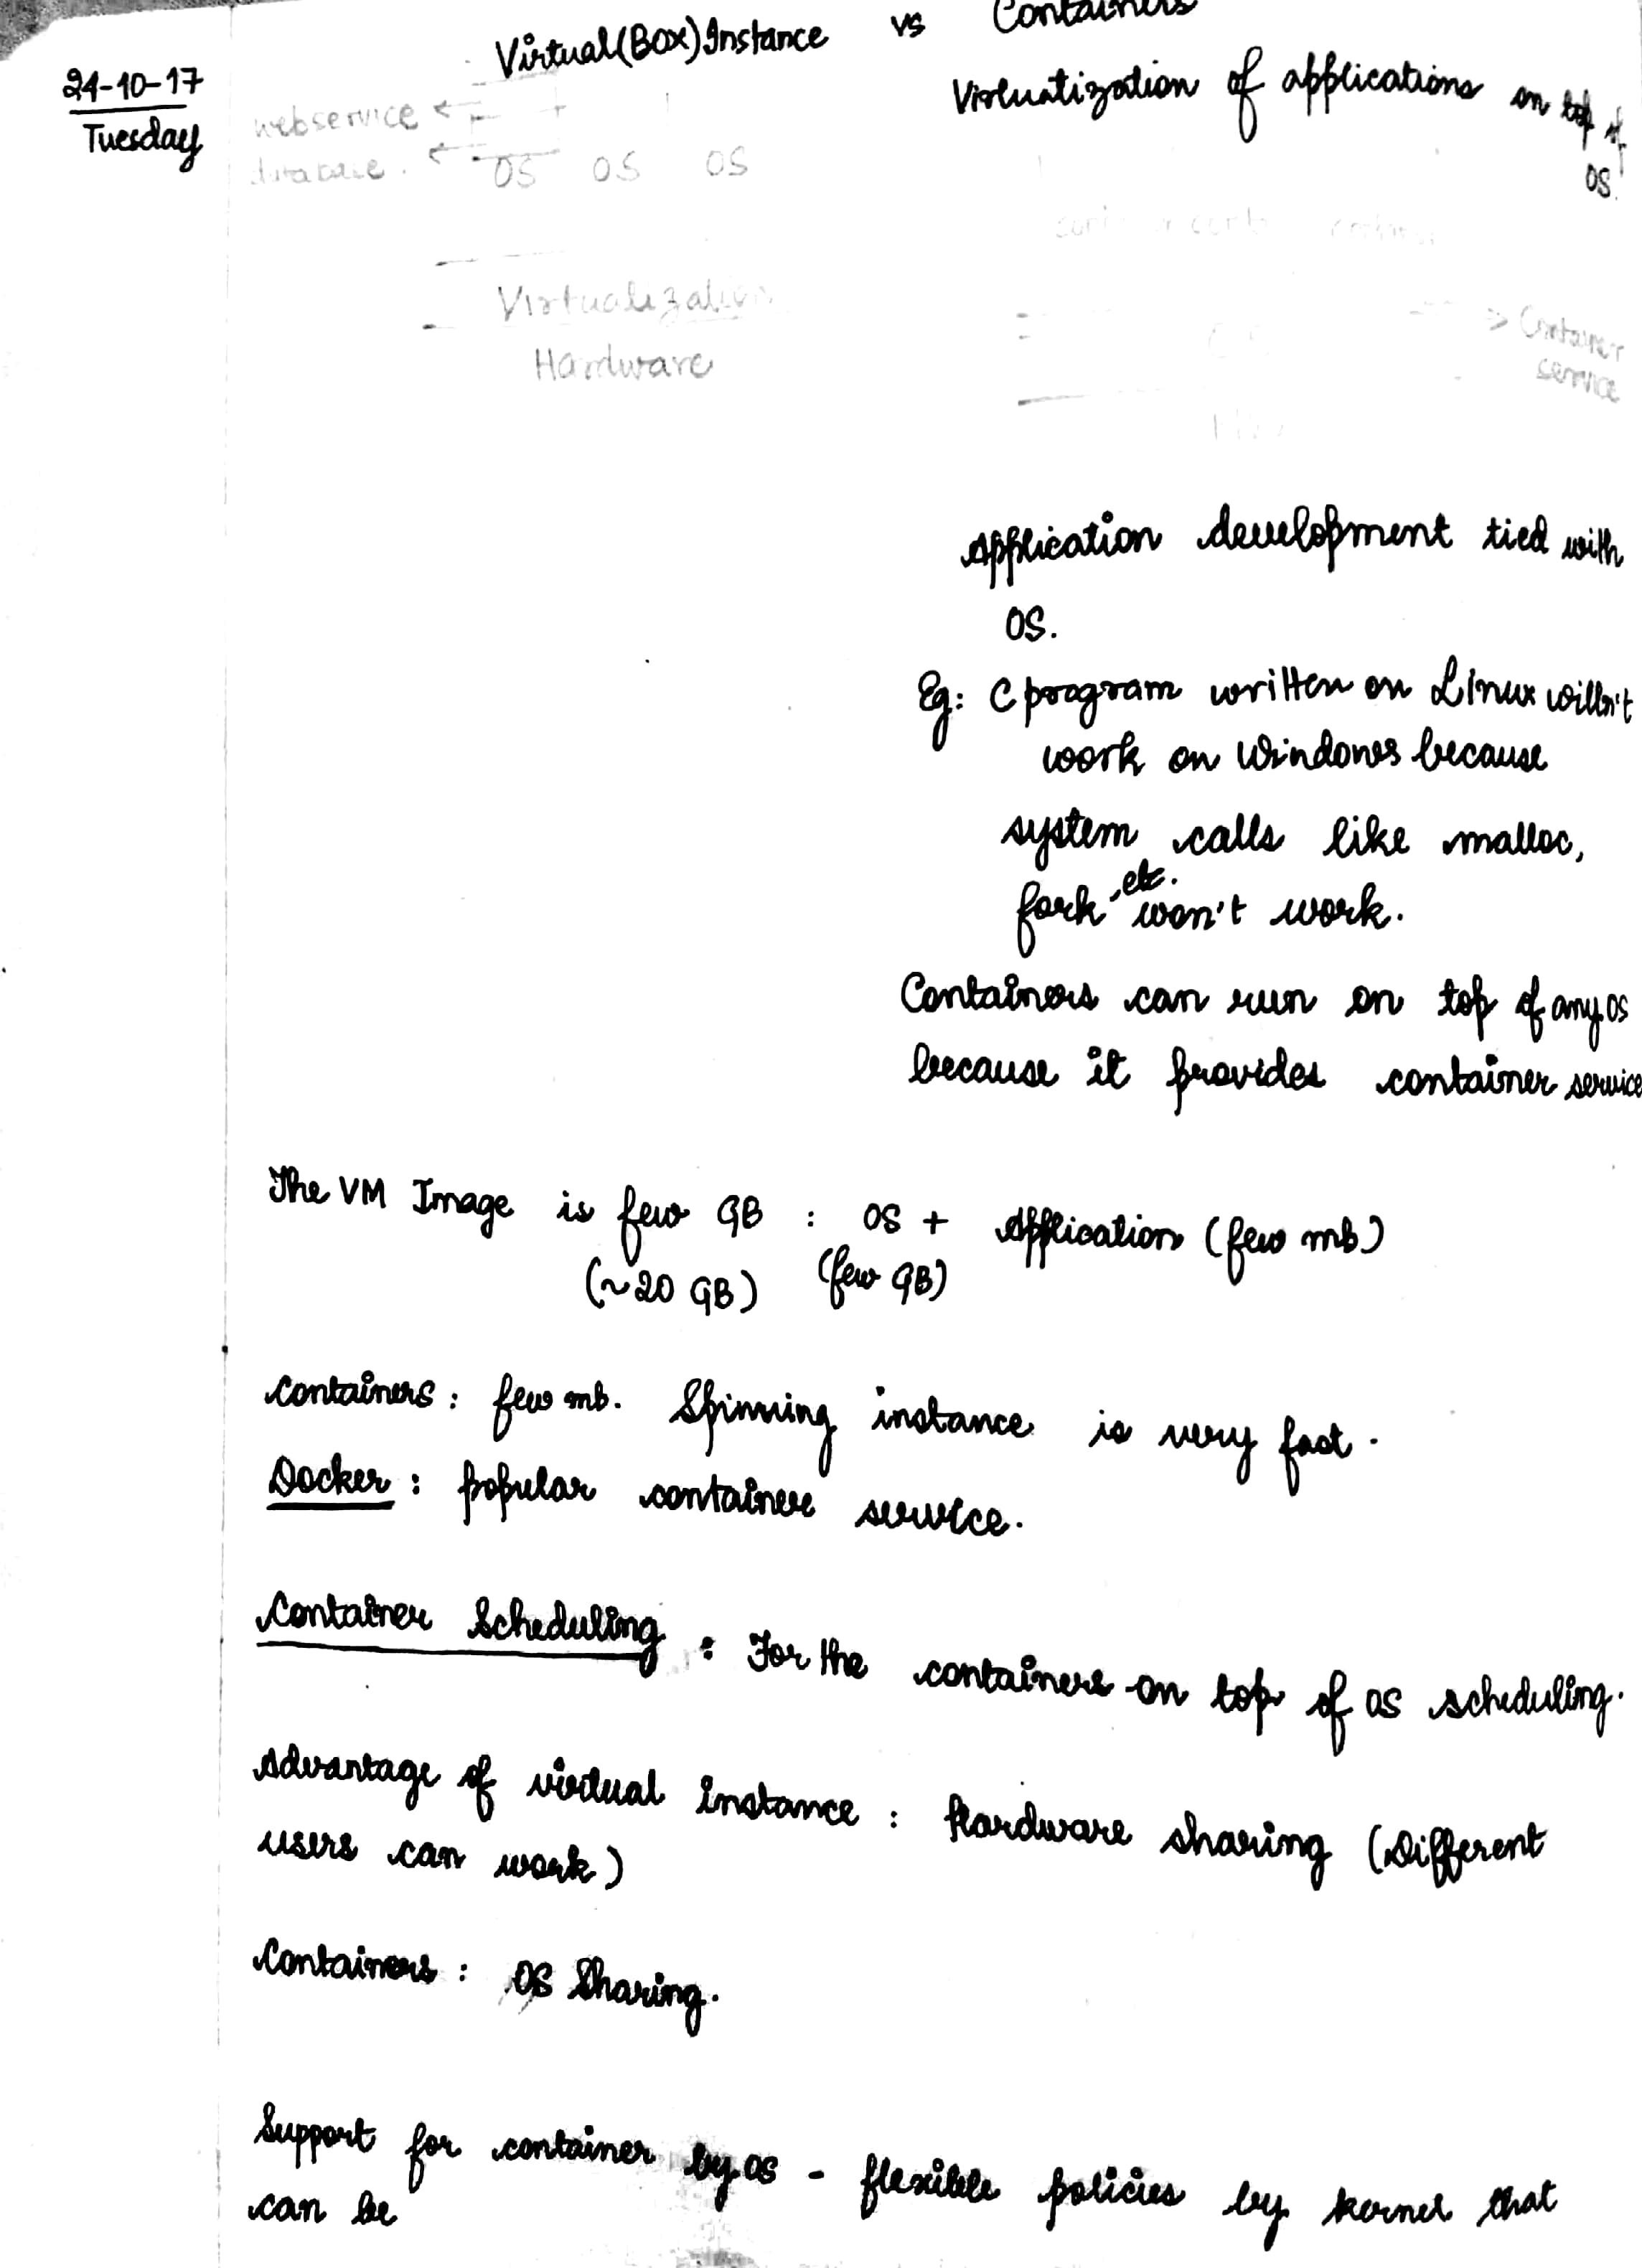 Virtual(Box)Instance vs Containers
24-10-17
Tuesday
Virtualization of applications on top of
OS.
webservice
database.
OS OS OS
Virtualization
Hardware
Container
service
Application development tied with
OS.
Eg: C program written on Linux willn't
work on Windows because
system calls like malloc,
fork, etc. won't work.
Containers can run on top of any OS
because it provides container service
The VM Image is few GB : OS + Application (few mb)
(~20 GB) (few GB)
Containers : few mb. Spinning instance is very fast.
Docker : popular container service.
Container Scheduling : For the containers on top of OS scheduling.
Advantage of virtual instance : Hardware sharing (Different
users can work)
Containers : OS Sharing.
Support for container by OS - flexible policies by kernel that
can be